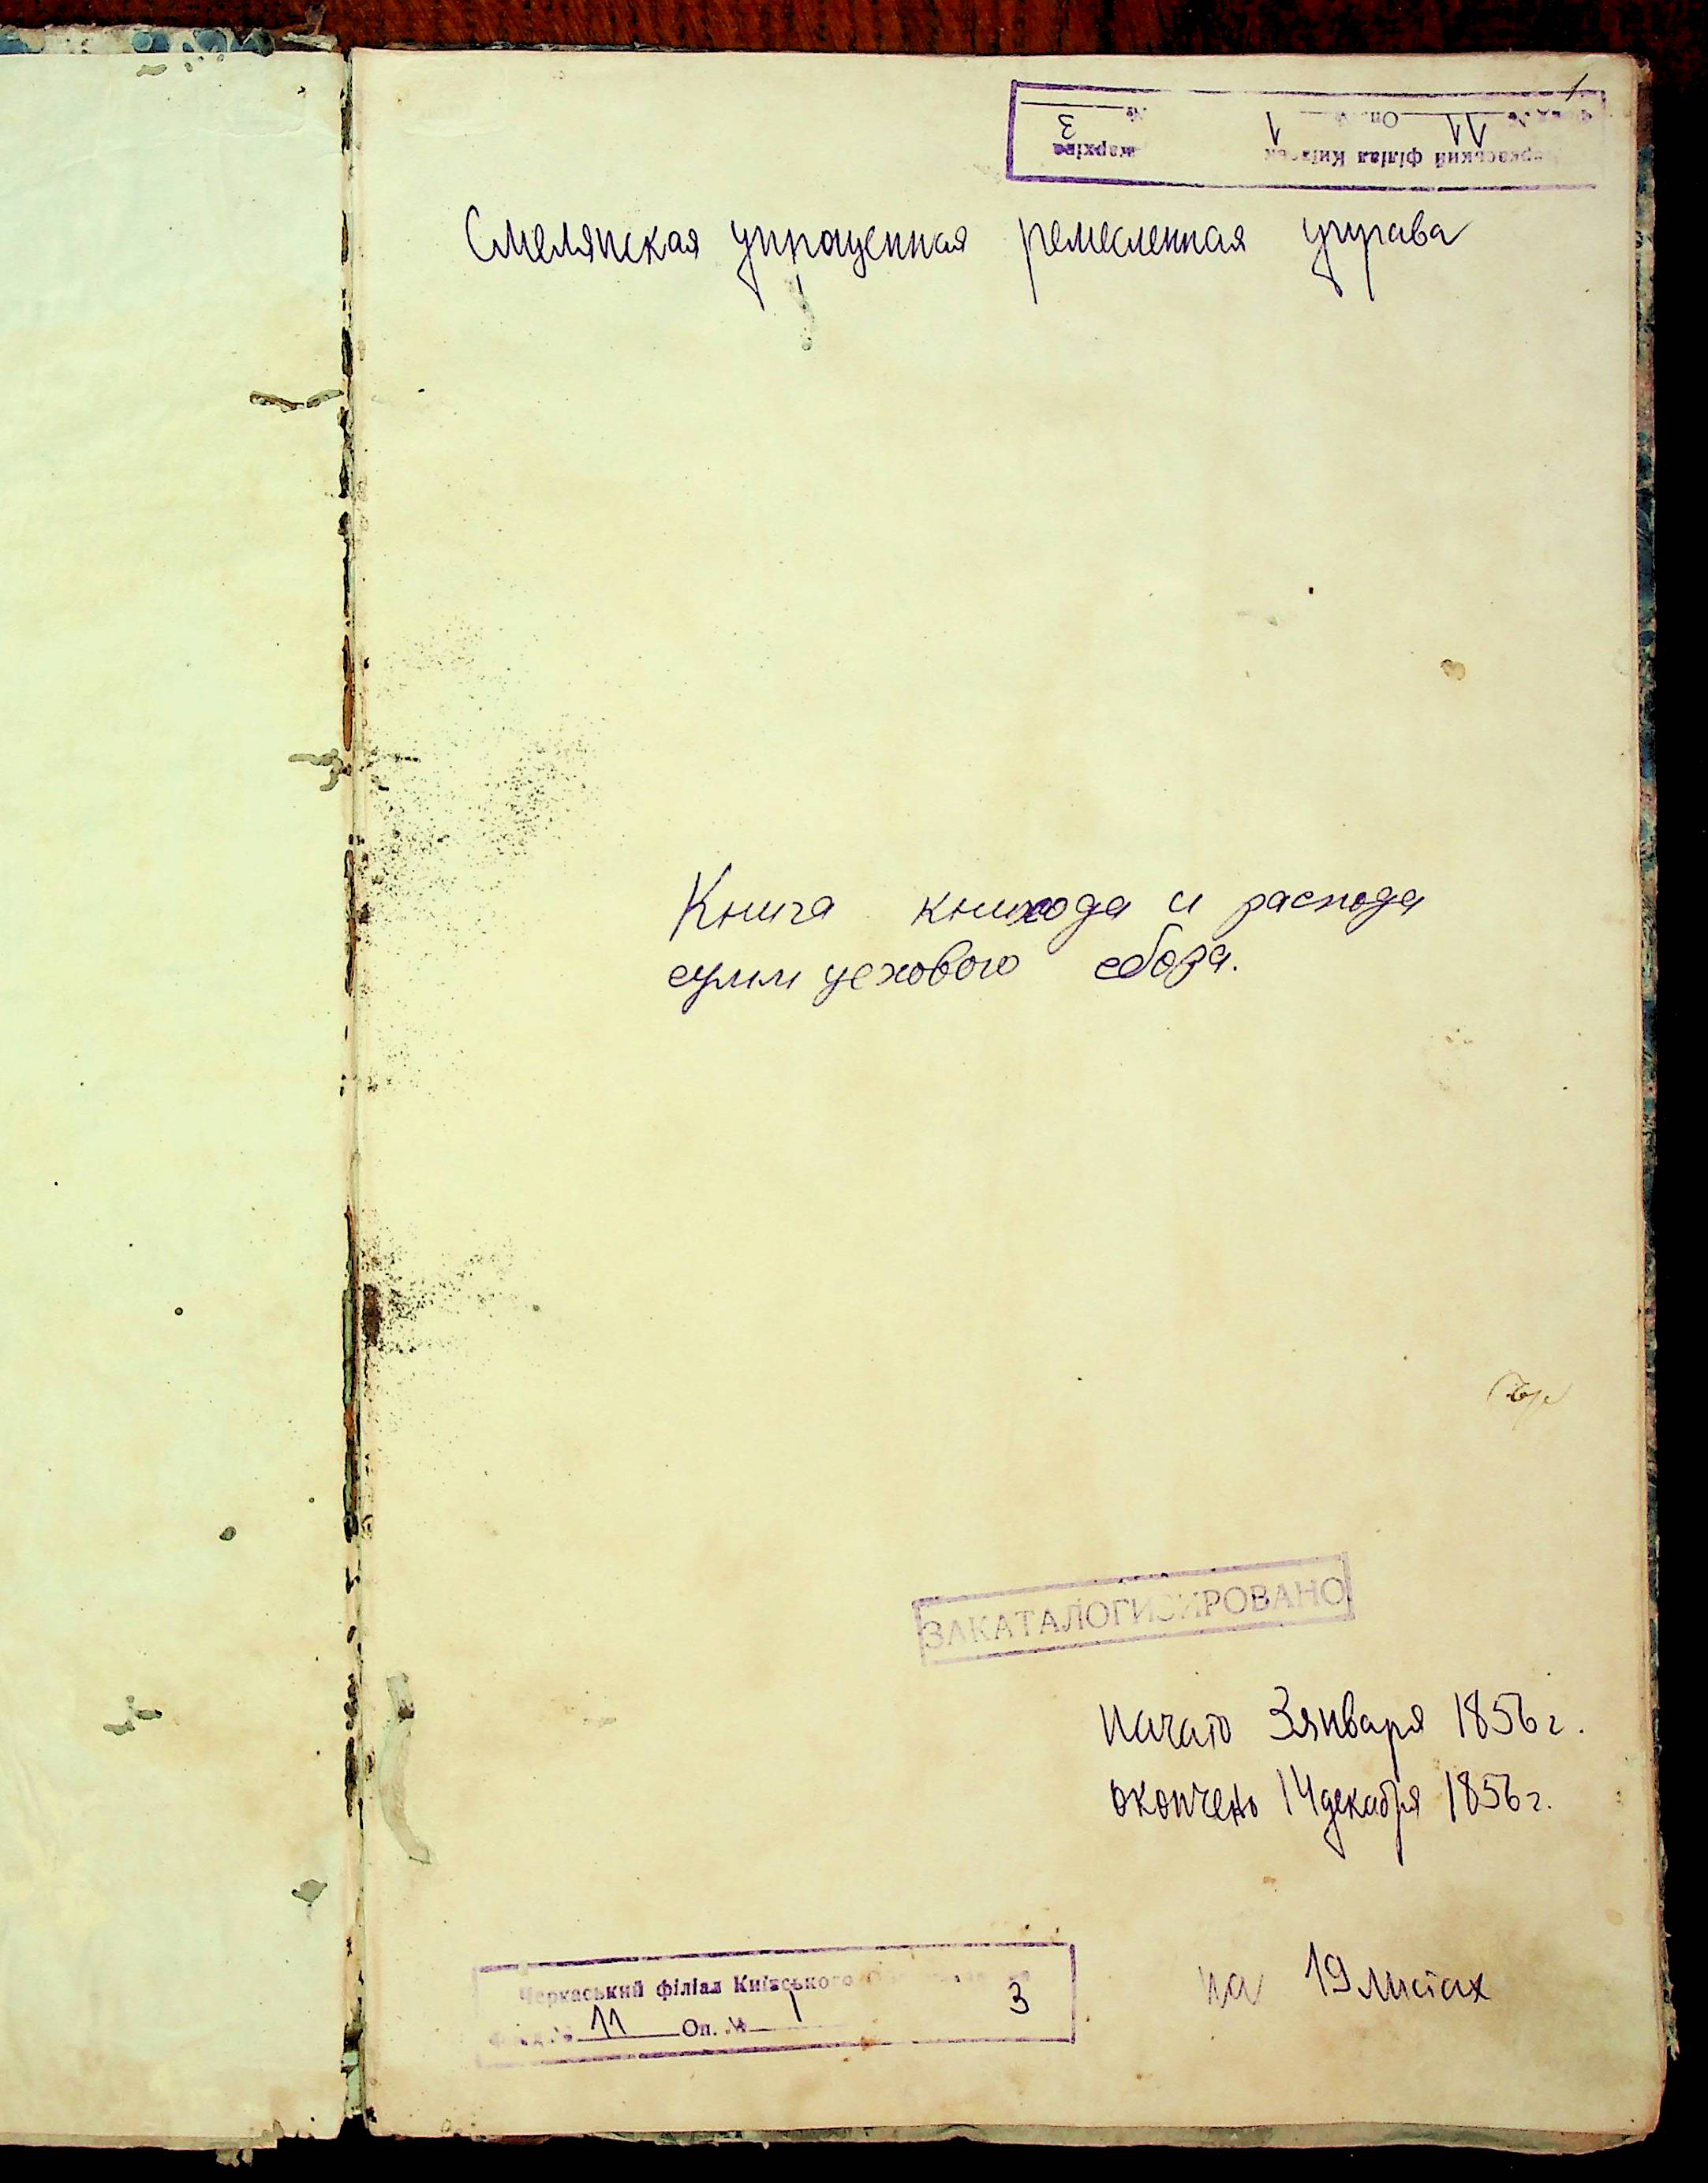 1
Черкаський філіал Київськ
Фонд № 11 Оп. № 1 № 3
Смелянская упрощенная ремесленная управа
Книга книхода и расхода
сумм цехового сбора.
ЗАКАТАЛОГИЗИРОВАНО
начато 3 января 1856 г.
окончено 14 декабря 1856 г.
на 19 листах
Черкаський філіал Київського
Фонд № 11 Оп. № 1 3